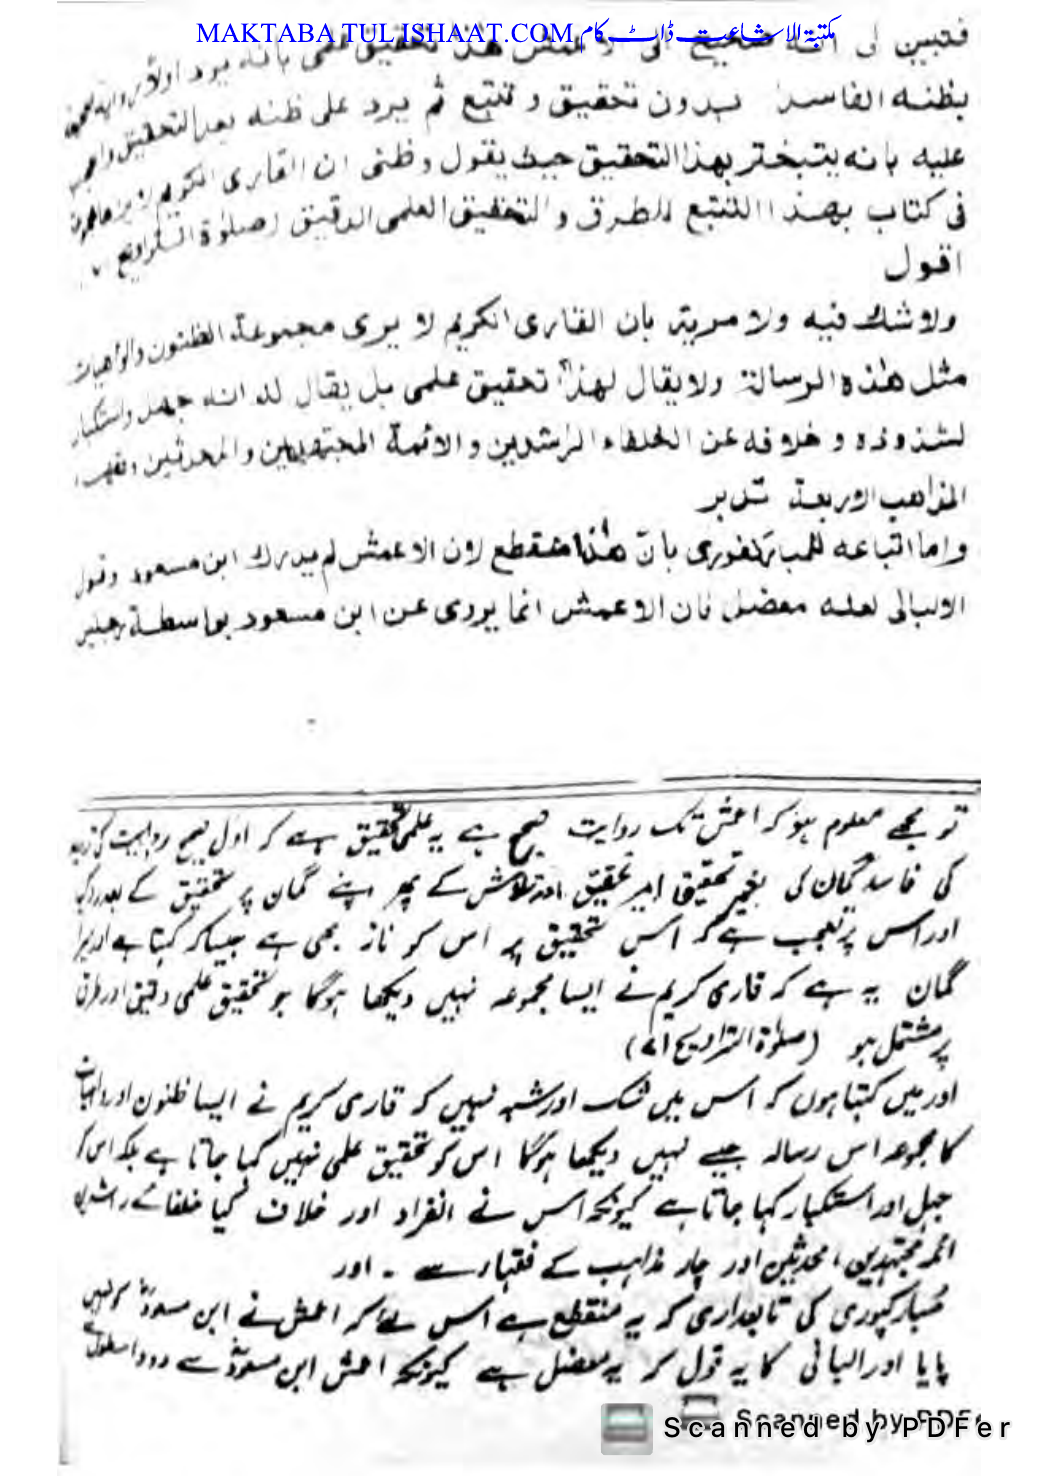 MAKTABA TUL ISHAAT.COM مکتبۃ الاشاعت ڈاٹ کام
فتبین لی انه صحیح
بظنه الفاسد بدون تحقیق و تتبع ثم یرد علی ظنه بعد التحقیق
علیه بانه یتبختر بهذا التحقیق حیث یقول وظنی ان القاری الکریم
فی کتاب بهذا التتبع للطرق والتحقیق العلمی الدقیق (صلوٰة التراویح
اقول
ولا شك فیه ولا مریة بان القاری الکریم لا یری مجموعة الظنون والواهیات
مثل هٰذه الرسالة ولا یقال لهذا تحقیق علمی بل یقال له انه جهل واستکبار
لشذوذه و خلافه عن الخلفاء الراشدین والائمة المجتهدین والمحدثین وفقهاء
المذاهب الاربعة تدبر
واما اتباعه للمبارکفوری بان هٰذا منقطع لان الاعمش لم یدرك ابن مسعود وقول
الالبانی لعله معضل فان الاعمش انما یروی عن ابن مسعود بواسطة رجلین
تو مجھے معلوم ہو کر اعمش تک روایت صحیح ہے یہ علمی تحقیق ہے کر اول صحیح روایت کی تردید
کی فاسد گمان کی بغیر تحقیق اور تلاش کے پھر اپنے گمان پر تحقیق کے بعد رد کیا
اور اس پر تعجب ہے کہ اس تحقیق پر اس کو ناز بھی ہے جیسا کہ کہتا ہے اور میرا
گمان یہ ہے کہ قاری کریم نے ایسا مجموعہ نہیں دیکھا ہوگا جو تحقیق علمی دقیق اور طرق
پر مشتمل ہو (صلوٰۃ التراویح
اور میں کہتا ہوں کہ اس میں شک اور شبہ نہیں کہ قاری کریم نے ایسا ظنون اور واہیات
کا مجموعہ اس رسالہ جیسے نہیں دیکھا ہوگا اس کو تحقیق علمی نہیں کہا جاتا ہے بلکہ اس کو
جہل اور استکبار کہا جاتا ہے کیونکہ اس نے انفراد اور خلاف کیا خلفائے راشدین
ائمہ مجتہدین، محدثین اور چار مذاہب کے فقہاء سے ۔ اور
مبارکپوری کی تابعداری کر یہ منقطع ہے اس لئے کہ اعمش نے ابن مسعودؓ کو نہیں
پایا اور البانی کا یہ قول کر یہ معضل ہے کیونکہ اعمش ابن مسعودؓ سے دو واسطوں
Scanned by PDF
Scanned by PDFer